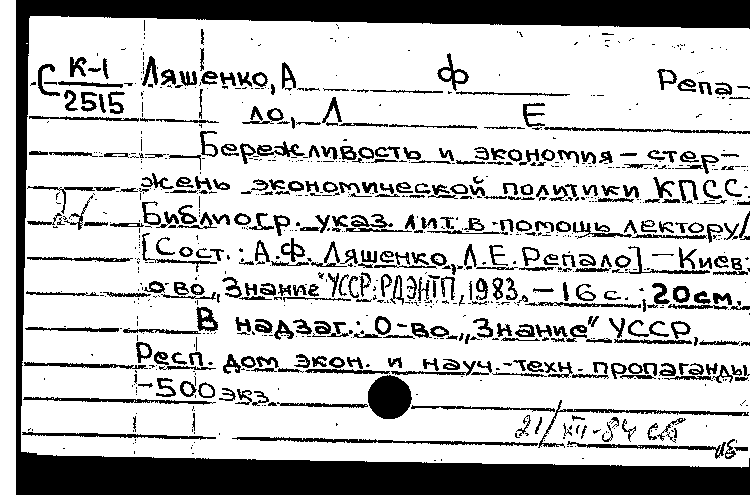 С К-1 Ляшенко, А Ф Репа-
2515 ло, Л Е
Бережливость и экономия – стер-
жень экономической политики КПСС.
2д Библиогр. указ. лит. в помощь лектору/
[Сост.: А.Ф. Ляшенко, Л.Е. Репало] – Киев:
о-во „Знание“ УССР: РДЭНТП, 1983. – 16 с.; 20см.
В надзаг.: О-во „Знание“ УССР,
Респ. дом экон. и науч.-техн. пропаганды
-500 экз.
21/XII-84 сб